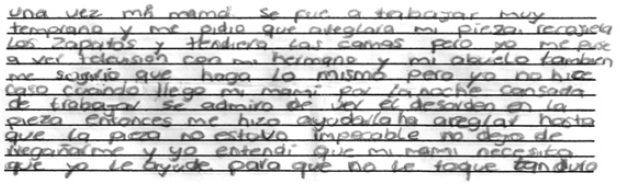 una vez mi mamá se fue a trabajar muy
temprano y me pidio que arreglara mi pieza, recogiera
los zapatos y tendiera las camas pero yo me puse
a ver television con mi hermano y mi abuelo tambien
me sugirio que haga lo mismo pero yo no hice
caso cuando llego mi mami por la noche cansada
de trabajar se admiro de ver el desorden en la
pieza entonces me hizo ayudarla ha arreglar hasta
que la pieza no estava impecable no dejo de
Regañarme y yo entendi que mi mami necesita
que yo le ayude para que no le toque tan duro